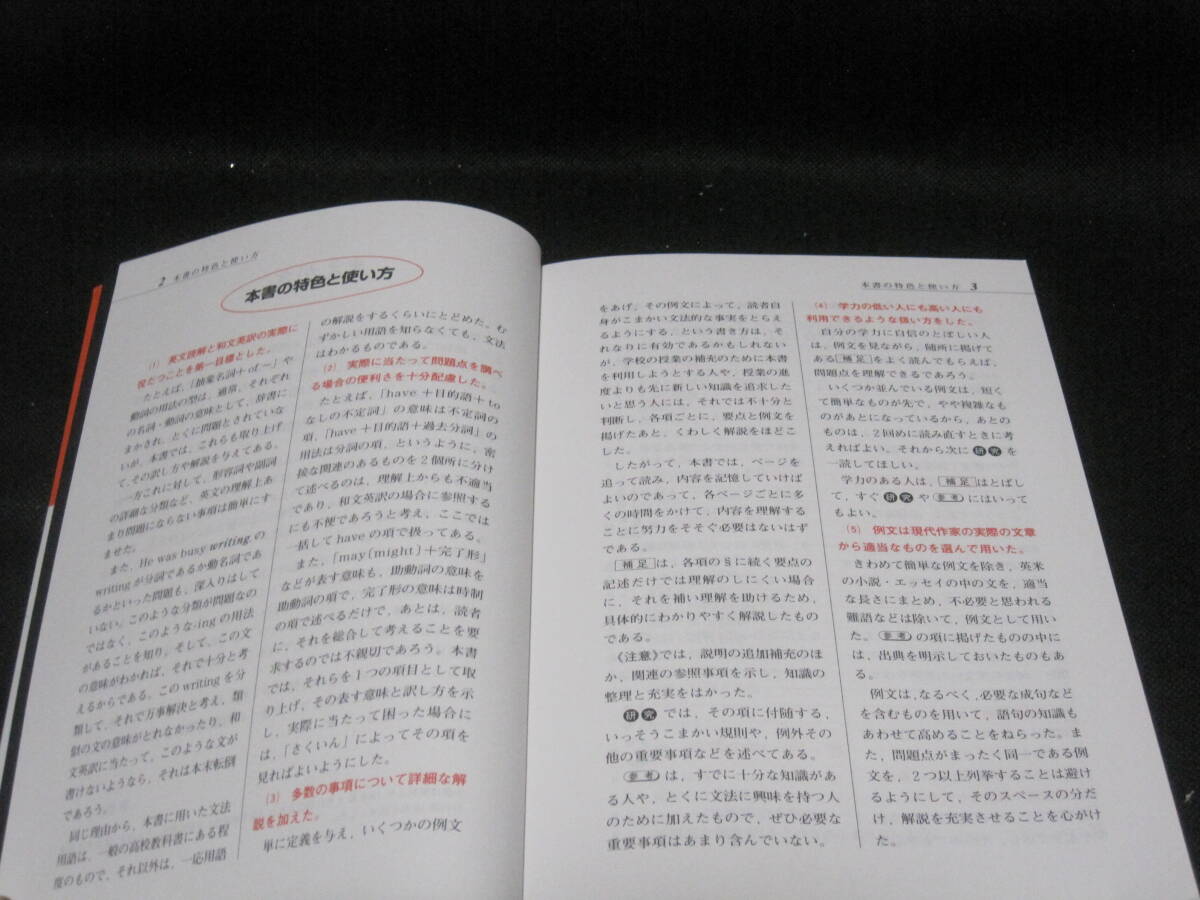 2 本書の特色と使い方
本書の特色と使い方
(1) 英文読解と和文英訳の実際に
役だつことを第一目標とした。
たとえば,「抽象名詞+of−」や
動詞の用法の型は, 通常, それぞれ
の名詞・動詞の意味として, 辞書に
まかされ, とくに問題とされていな
いが, 本書では, これらも取り上げ
て, その訳し方や解説を与えてある。
一方これに対して, 形容詞や副詞
の詳細な分類など, 英文の理解上あ
まり問題にならない事項は簡単にす
ませた。
また, He was busy writing の
writing が分詞であるか動名詞であ
るかといった問題も, 深入りはして
いない。このような分類が問題なの
ではなく, このような-ing の用法
があることを知り, そして, この文
の意味がわかれば, それで十分と考
えるからである。この writing を分
類して, それで万事解決と考え, 類
似の文の意味がとれなかったり, 和
文英訳に当たって, このような文が
書けないようなら, それは本末転倒
であろう。
同じ理由から, 本書に用いた文法
用語は, 一般の高校教科書にある程
度のもので, それ以外は, 一応用語
の解説をするくらいにとどめた。む
ずかしい用語を知らなくても, 文法
はわかるものである。
(2) 実際に当たって問題点を調べ
る場合の便利さを十分配慮した。
たとえば,「have+目的語+to
なしの不定詞」の意味は不定詞の
項,「have+目的語+過去分詞」の
用法は分詞の項, というように, 密
接な関連のあるものを2個所に分け
て述べるのは, 理解上からも不適当
であり, 和文英訳の場合に参照する
にも不便であろうと考え, ここでは
一括して have の項で扱ってある。
また,「may(might)+完了形」
などが表す意味も, 助動詞の意味を
助動詞の項で, 完了形の意味は時制
の項で述べるだけで, あとは, 読者
に, それを総合して考えることを要
求するのでは不親切であろう。本書
では, それらを1つの項目として取
り上げ, その表す意味と訳し方を示
し, 実際に当たって困った場合に
は,「さくいん」によってその項を
見ればよいようにした。
(3) 多数の事項について詳細な解
説を加えた。
単に定義を与え, いくつかの例文
本書の特色と使い方 3
をあげ, その例文によって, 読者自
身がこまかい文法的な事実をとらえ
るようにする, という書き方は, そ
れなりに有効であるかもしれない
が, 学校の授業の補充のために本書
を利用しようとする人や, 授業の進
度よりも先に新しい知識を追求した
いと思う人には, それでは不十分と
判断し, 各項ごとに, 要点と例文を
掲げたあと, くわしく解説をほどこ
した。
したがって, 本書では, ページを
追って読み, 内容を記憶していけば
よいのであって, 各ページごとに多
くの時間をかけて, 内容を理解する
ことに努力をそそぐ必要はないはず
である。
補足 は, 各項の§に続く要点の
記述だけでは理解のしにくい場合
に, それを補い理解を助けるため,
具体的にわかりやすく解説したもの
である。
《注意》では, 説明の追加補充のほ
か, 関連の参照事項を示し, 知識の
整理と充実をはかった。
研究 では, その項に付随する,
いっそうこまかい規則や, 例外その
他の重要事項などを述べてある。
参考 は, すでに十分な知識があ
る人や, とくに文法に興味を持つ人
のために加えたもので, ぜひ必要な
重要事項はあまり含んでいない。
(4) 学力の低い人にも高い人にも
利用できるような扱い方をした。
自分の学力に自信のとぼしい人
は, 例文を見ながら, 随所に掲げて
ある 補足 をよく読んでもらえば,
問題点を理解できるであろう。
いくつか並んでいる例文は, 短く
て簡単なものが先で, やや複雑なも
のがあとになっているから, あとの
ものは, 2回めに読み直すときに考
えればよい。それから次に 研究 を
一読してほしい。
学力のある人は, 補足 はとばし
て, すぐ 研究 や 参考 にはいって
もよい。
(5) 例文は現代作家の実際の文章
から適当なものを選んで用いた。
きわめて簡単な例文を除き, 英米
の小説・エッセイの中の文を, 適当
な長さにまとめ, 不必要と思われる
難語などは除いて, 例文として用い
た。参考 の項に掲げたものの中に
は, 出典を明示しておいたものもあ
る。
例文は, なるべく, 必要な成句など
を含むものを用いて, 語句の知識も
あわせて高めることをねらった。ま
た, 問題点がまったく同一である例
文を, 2つ以上列挙することは避け
るようにして, そのスペースの分だ
け, 解説を充実させることを心がけ
た。